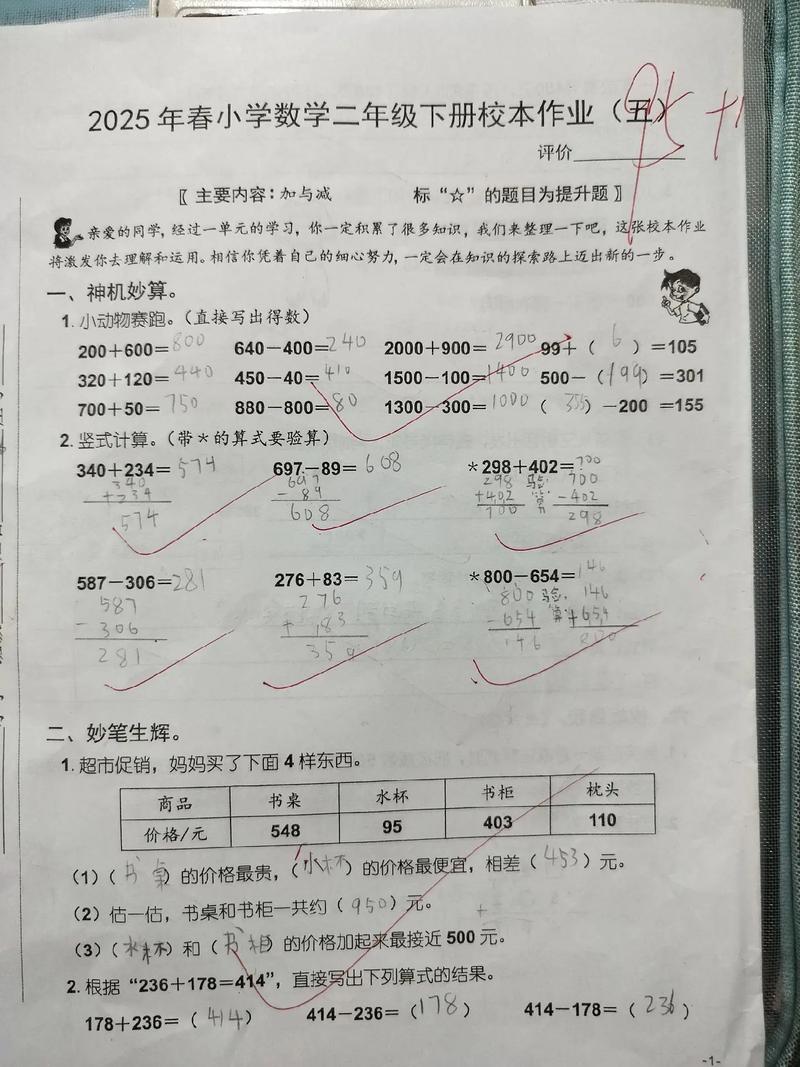 2025年春小学数学二年级下册校本作业（五）
95+
评价
〖主要内容：加与减 标“☆”的题目为提升题〗
亲爱的同学，经过一单元的学习，你一定积累了很多知识，我们来整理一下吧，这张校本作业
将激发你去理解和运用。相信你凭着自己的细心努力，一定会在知识的探索路上迈出新的一步。
一、神机妙算。
1. 小动物赛跑。（直接写出得数）
200＋600＝800 640－400＝240 2000＋900＝2900 99＋（6）＝105
320＋120＝440 450－40＝410 1500－100＝1400 500－（199）＝301
700＋50＝750 880－800＝80 1300－300＝1000 （355）－200＝155
2. 竖式计算。（带＊的算式要验算）
340＋234＝574 697－89＝608 ＊298＋402＝700
340 697 298 验 700
+234 - 89 +402 算 -402
574 608 700 298
587－306＝281 276＋83＝359 ＊800－654＝146
587 276 800 验 146
- 306 + 83 -654 算 +654
281 359 146 800
二、妙笔生辉。
1. 超市促销，妈妈买了下面4样东西。
商品 书桌 水杯 书柜 枕头
价格/元 548 95 403 110
（1）（书桌）的价格最贵，（小杯）的价格最便宜，相差（453）元。
（2）估一估，书桌和书柜一共约（950）元。
（3）（水杯）和（书柜）的价格加起来最接近500元。
2. 根据“236＋178＝414”，直接写出下列算式的结果。
178＋236＝（414） 414－236＝（178） 414－178＝（236）
-1-